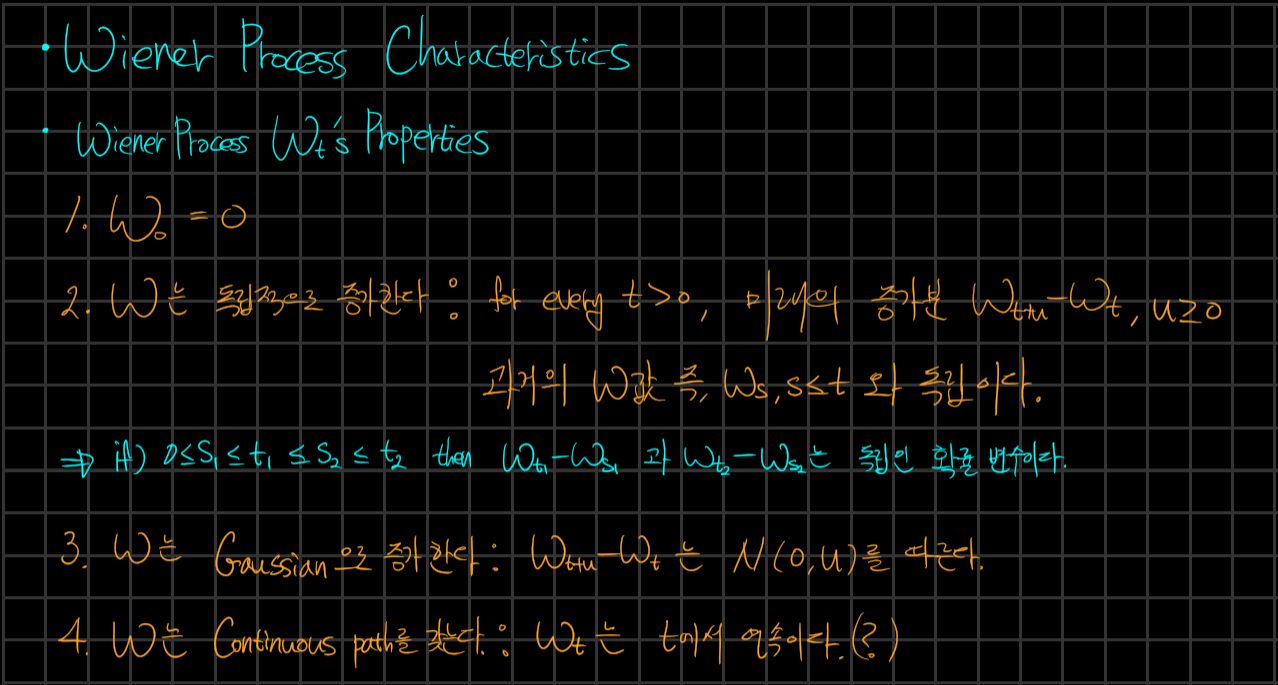 · Wiener Process Characteristics
· Wiener Process Wₜ's Properties
1. W₀ = 0
2. W는 독립적으로 증가한다 : for every t>0, 미래의 증가분 Wₜ₊ᵤ-Wₜ, u≥0
과거의 W값 즉, Wₛ, s≤t 와 독립이다.
⇒ if) 0≤S₁≤t₁≤S₂≤t₂ then W_t₁-W_s₁ 과 W_t₂-W_s₂는 독립인 확률 변수이다.
3. W는 Gaussian으로 증가한다 : Wₜ₊ᵤ-Wₜ 는 N(0,u)를 따른다.
4. W는 Continuous path를 갖는다. : Wₜ는 t에서 연속이다.(?)